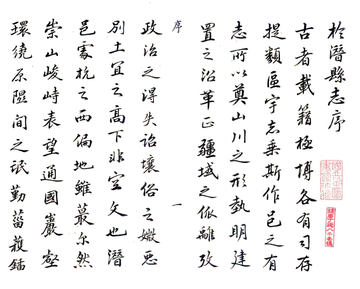 於潛縣志序
古者載籍極博各有司存
提類區宇志乘斯作邑之有
志所以奠山川之形勢明建
置之沿革正疆域之依離攷
序
一
政治之得失診壤俗之媺惡
別土宜之高下非空文也潛
邑蒙杭之西偏地雖蕞尓然
崇山峻峙表望通國巖壑
環繞原隰間之氓勤菑穫鍤